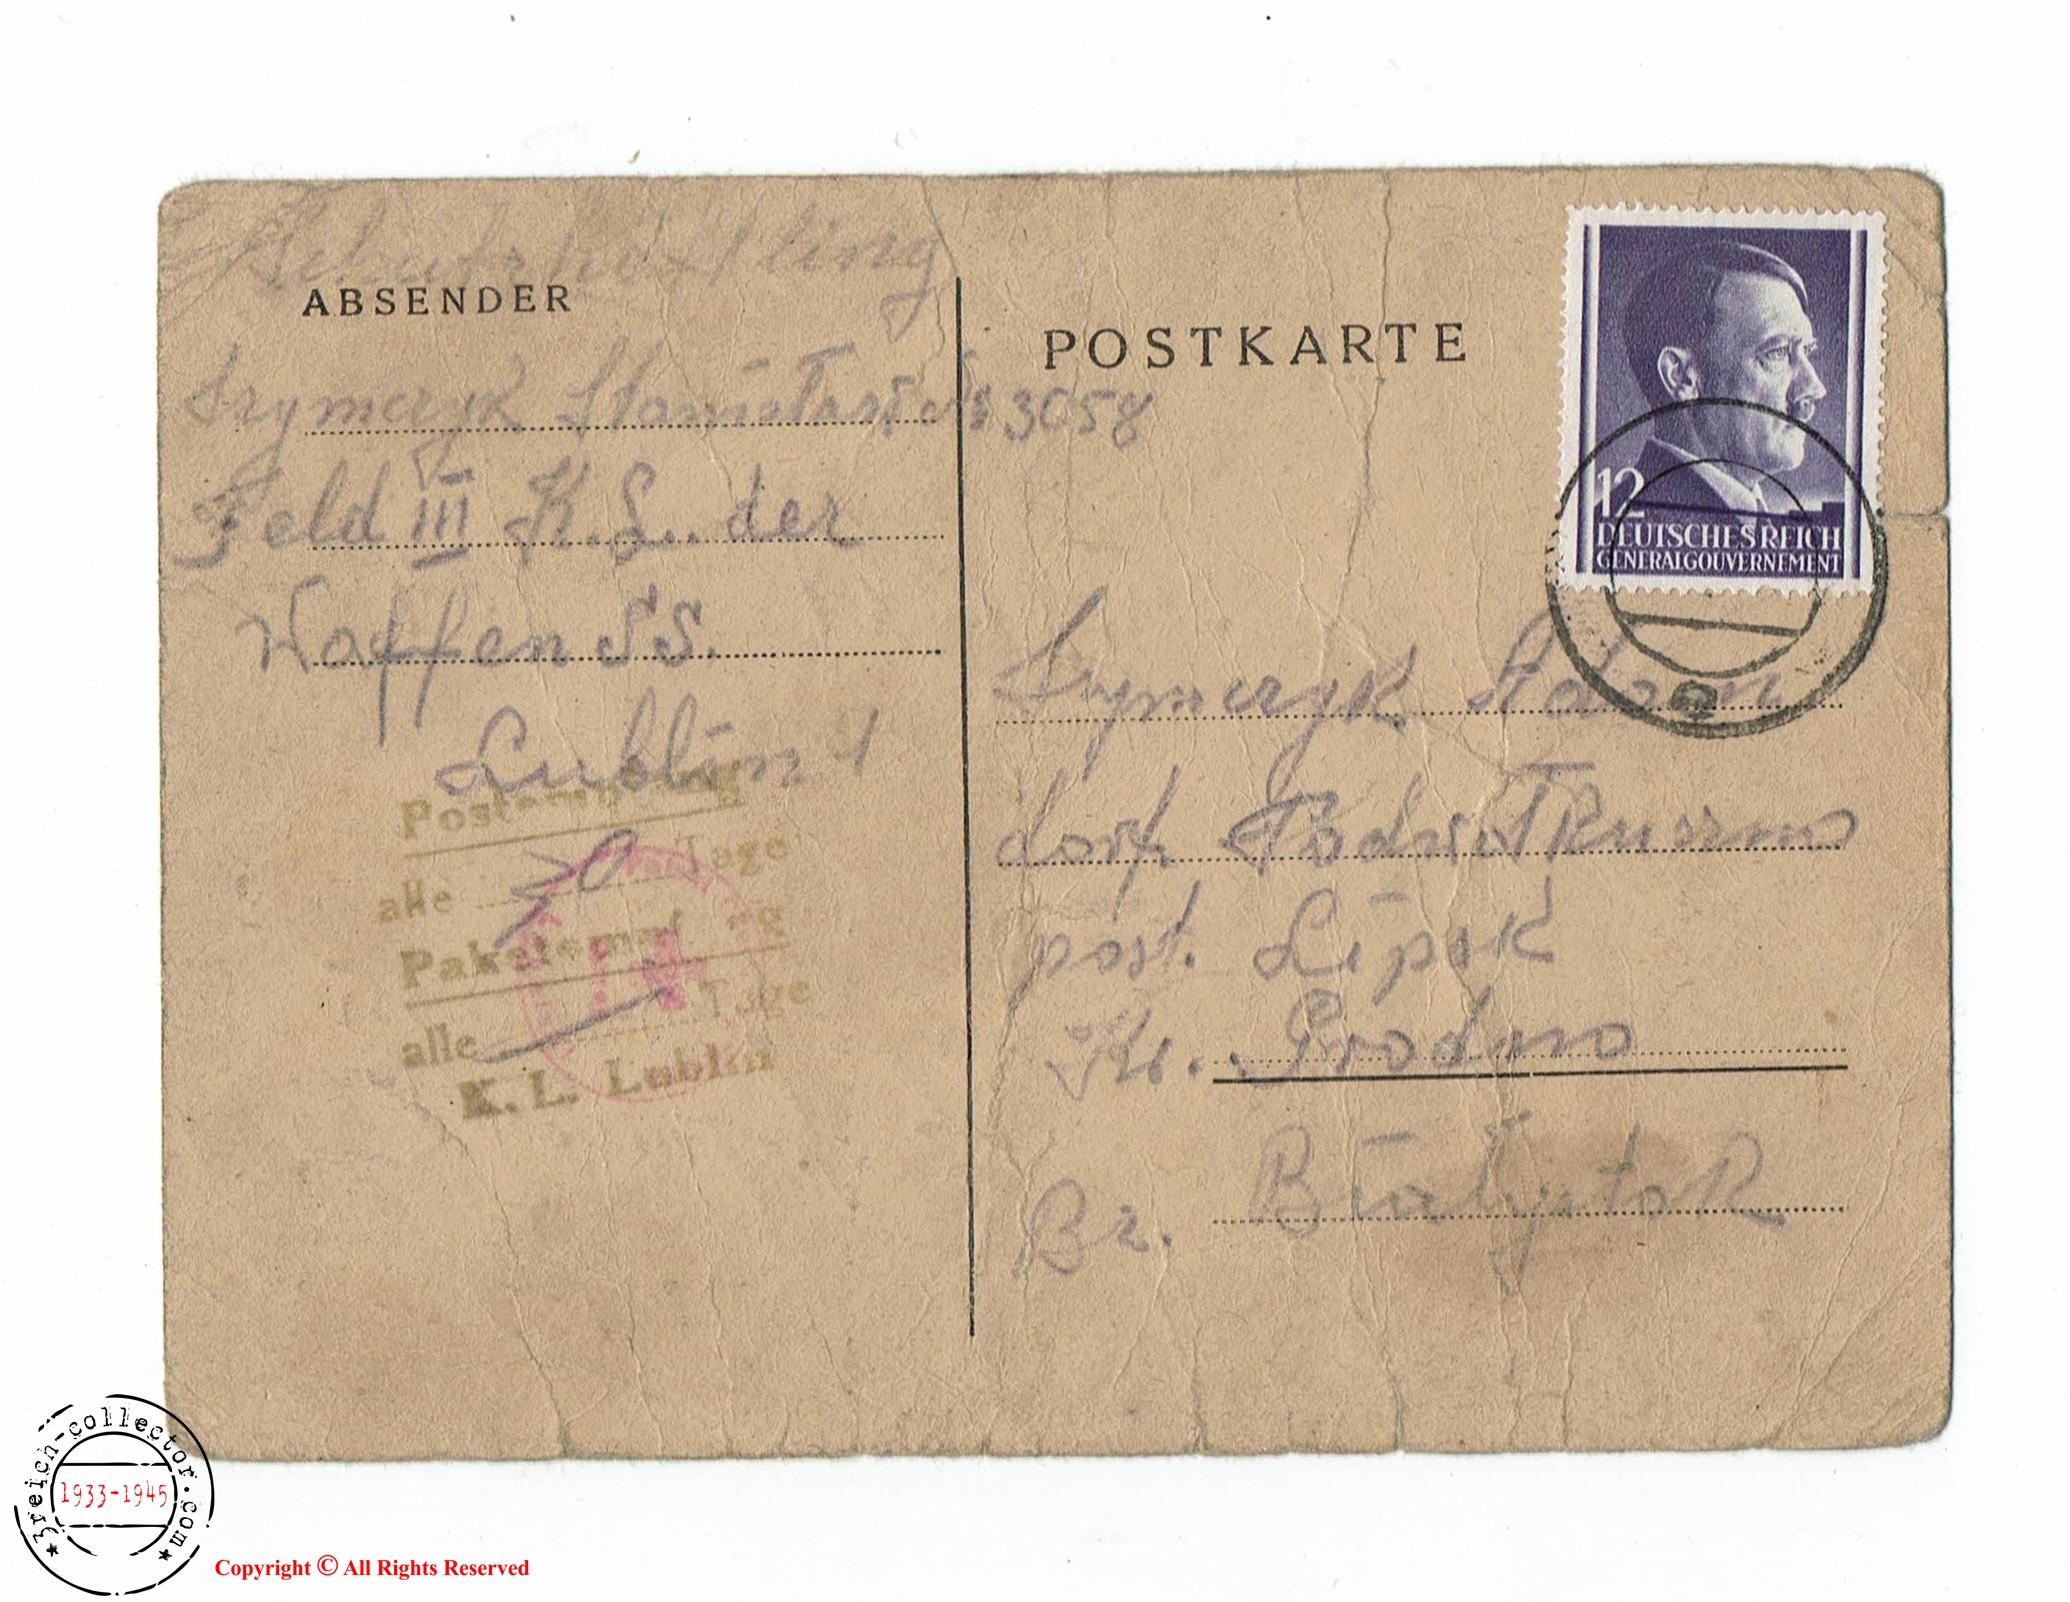 Schutzhäftling
ABSENDER
Szymczyk Stanisław № 3058
Feld III K.L. der
Waffen SS.
Lublin 1
Postempfang
alle 30 Tage
Paketempfang
alle Tage
K. L. Lublin
POSTKARTE
12
DEUTSCHES REICH
GENERALGOUVERNEMENT
Szymczyk Adam
dorf.
post. Lipsk
Kr. Grodno
Bz. Białystok
3reich-collector.com
1933-1945
Copyright © All Rights Reserved